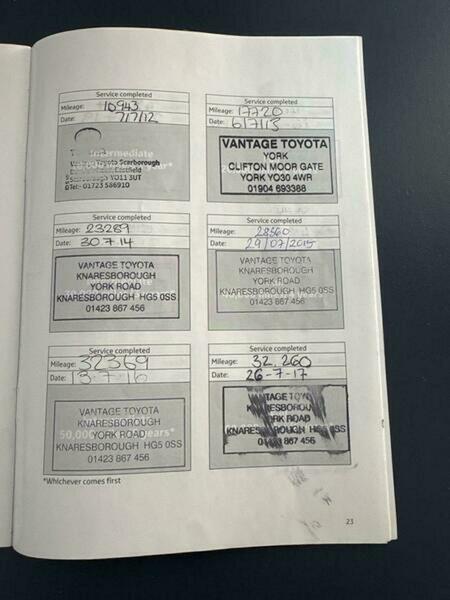 Service completed
Mileage: 10943
Date: 7/7/12
Intermediate
Toyota Scarborough
Eastfield
Scarborough YO11 3UT
Tel:- 01723 586910
Service completed
Mileage: 17720
Date: 6/7/13
VANTAGE TOYOTA
YORK
CLIFTON MOOR GATE
YORK YO30 4WR
01904 693388
Service completed
Mileage: 23289
Date: 30.7.14
VANTAGE TOYOTA
KNARESBOROUGH
YORK ROAD
KNARESBOROUGH HG5 0SS
01423 867 456
Service completed
Mileage: 28560
Date: 29/07/2015
VANTAGE TOYOTA
KNARESBOROUGH
YORK ROAD
KNARESBOROUGH HG5 0SS
01423 867 456
Service completed
Mileage: 32369
Date: 13.7.16
VANTAGE TOYOTA
KNARESBOROUGH
YORK ROAD
KNARESBOROUGH HG5 0SS
01423 867 456
Service completed
Mileage: 32,260
Date: 26-7-17
ROAD
HG5 0SS
867 456
*Whichever comes first
23